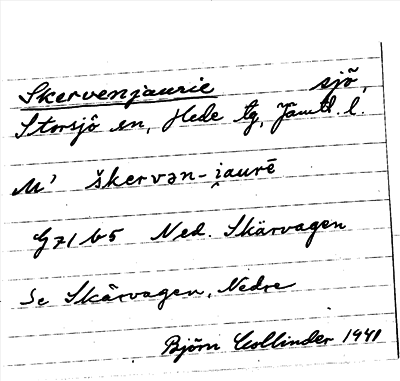 Skervenjaurie sjö,
Storsjö sn, Hede tg, Jämtl. l.
M' škervən-i̯aurē
G71 b5 Ned. Skärvagen
Se Skärvagen, Nedre
Björn Collinder 1941